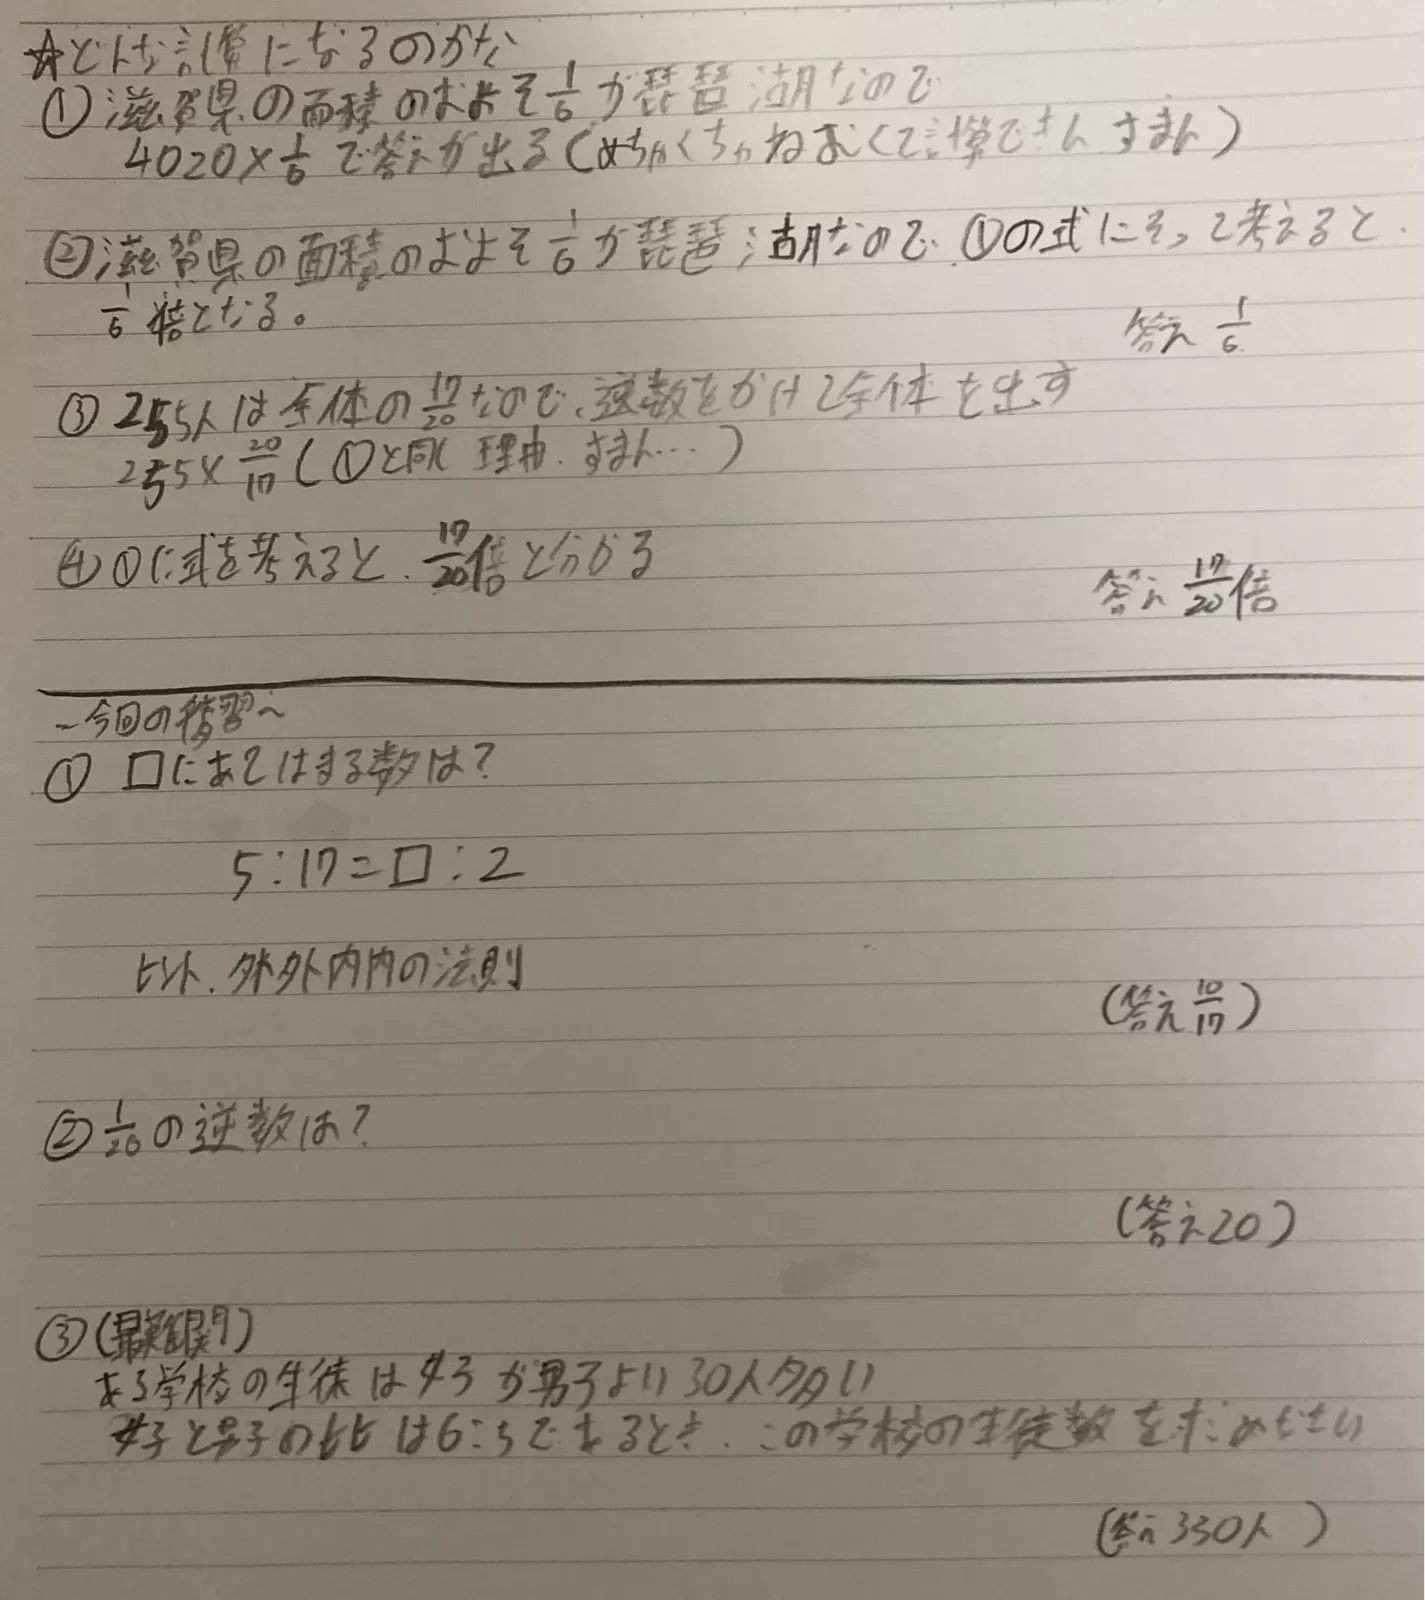 ☆どんな計算になるのかな
① 滋賀県の面積のおよそ1/6が琵琶湖なので
4020×1/6で答えが出る(めちゃくちゃねむくて計算できん すまん)
②滋賀県の面積のおよそ1/6が琵琶湖なので、①の式にそって考えると、
1/6倍となる。
答え 1/6
③ 255人は全体の17/20なので、逆数をかけて全体を出す
255×20/17(①と同じ理由、すまん…)
④ ①に式を考えると、17/20倍と分かる
答え 17/20倍
~今回の積習~
① □にあてはまる数は?
5:17=□:2
ヒント、外外内内の法則
(答え 10/17)
② 1/20の逆数は?
(答え20)
③(最難関)
ある学校の生徒は女子が男子より30人多い
女子と男子の比は6:5であるとき、この学校の生徒数を求めなさい
(答え 330人)